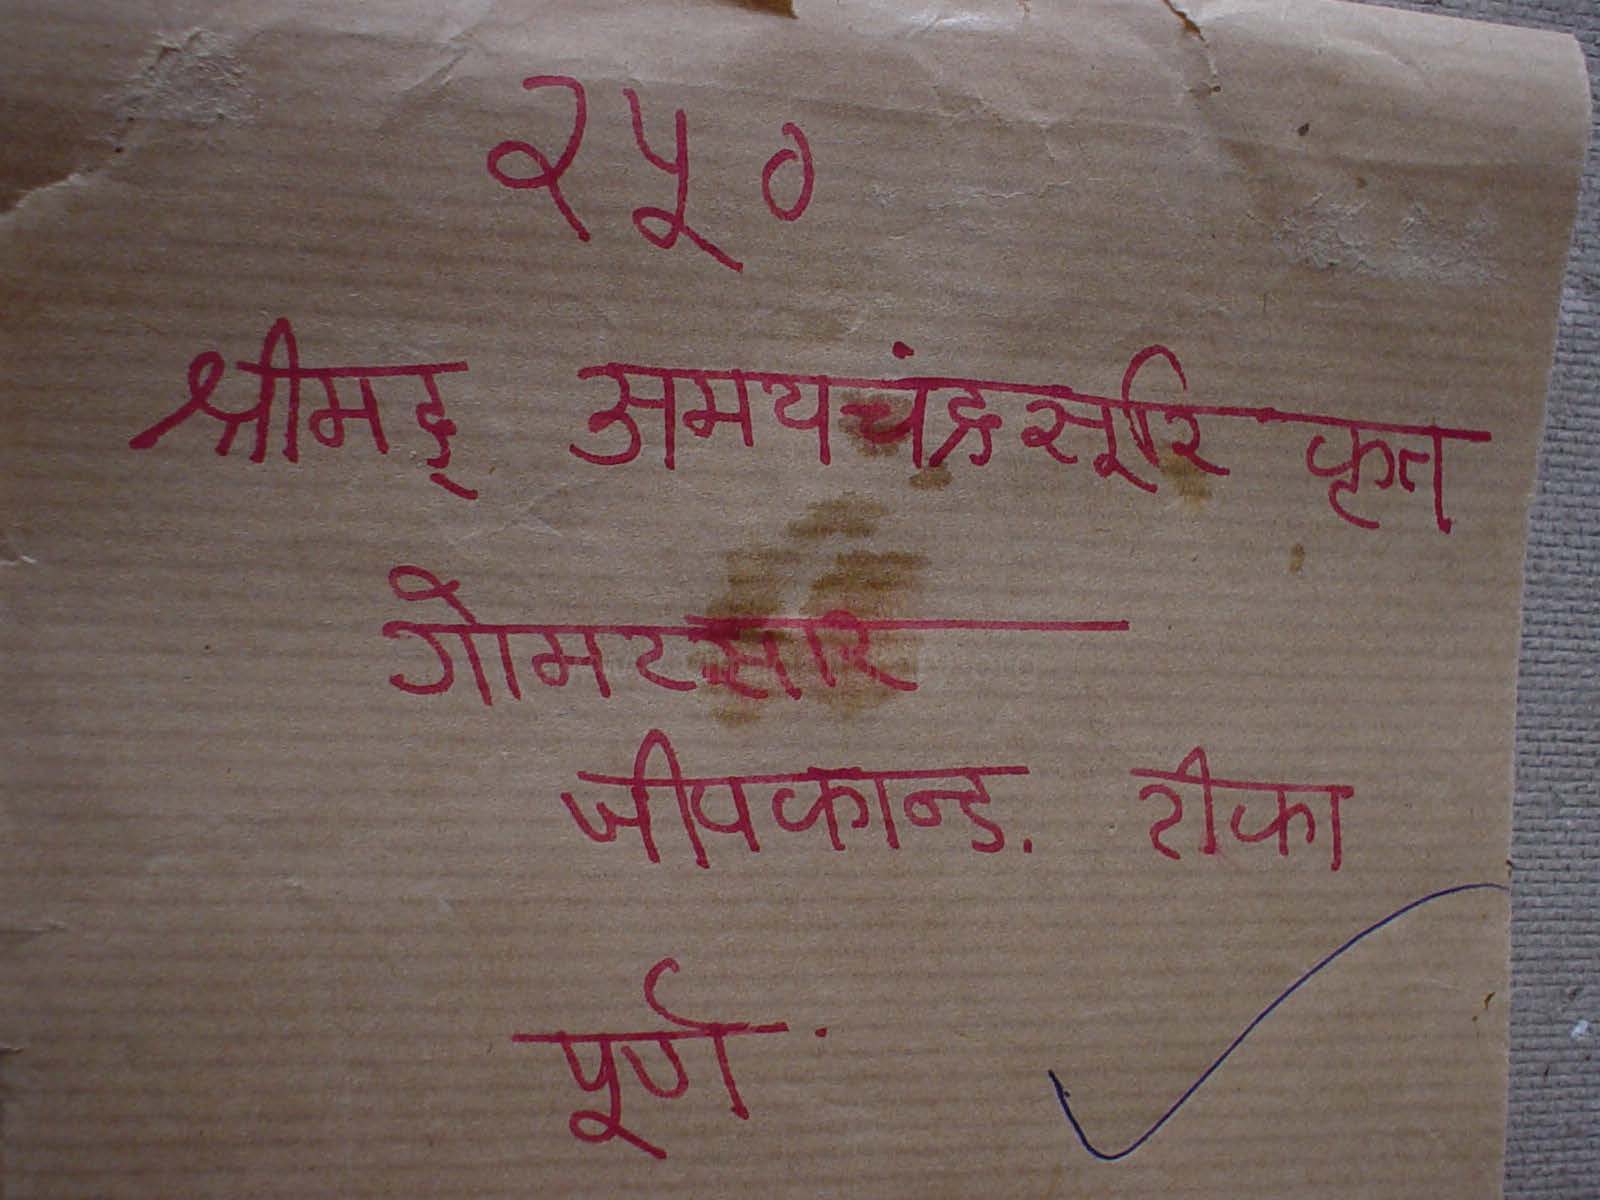 २५०
श्रीमद् अभयचंद्रसूरि कृत
गोमटसार
जीवकान्ड. टीका
पूर्ण.